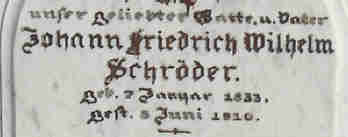 unser geliebter Gatte, u. Vater
Johann Friedrich Wilhelm
Schröder.
Geb. 7 Januar 1833.
Gest. 8 Juni 1910.